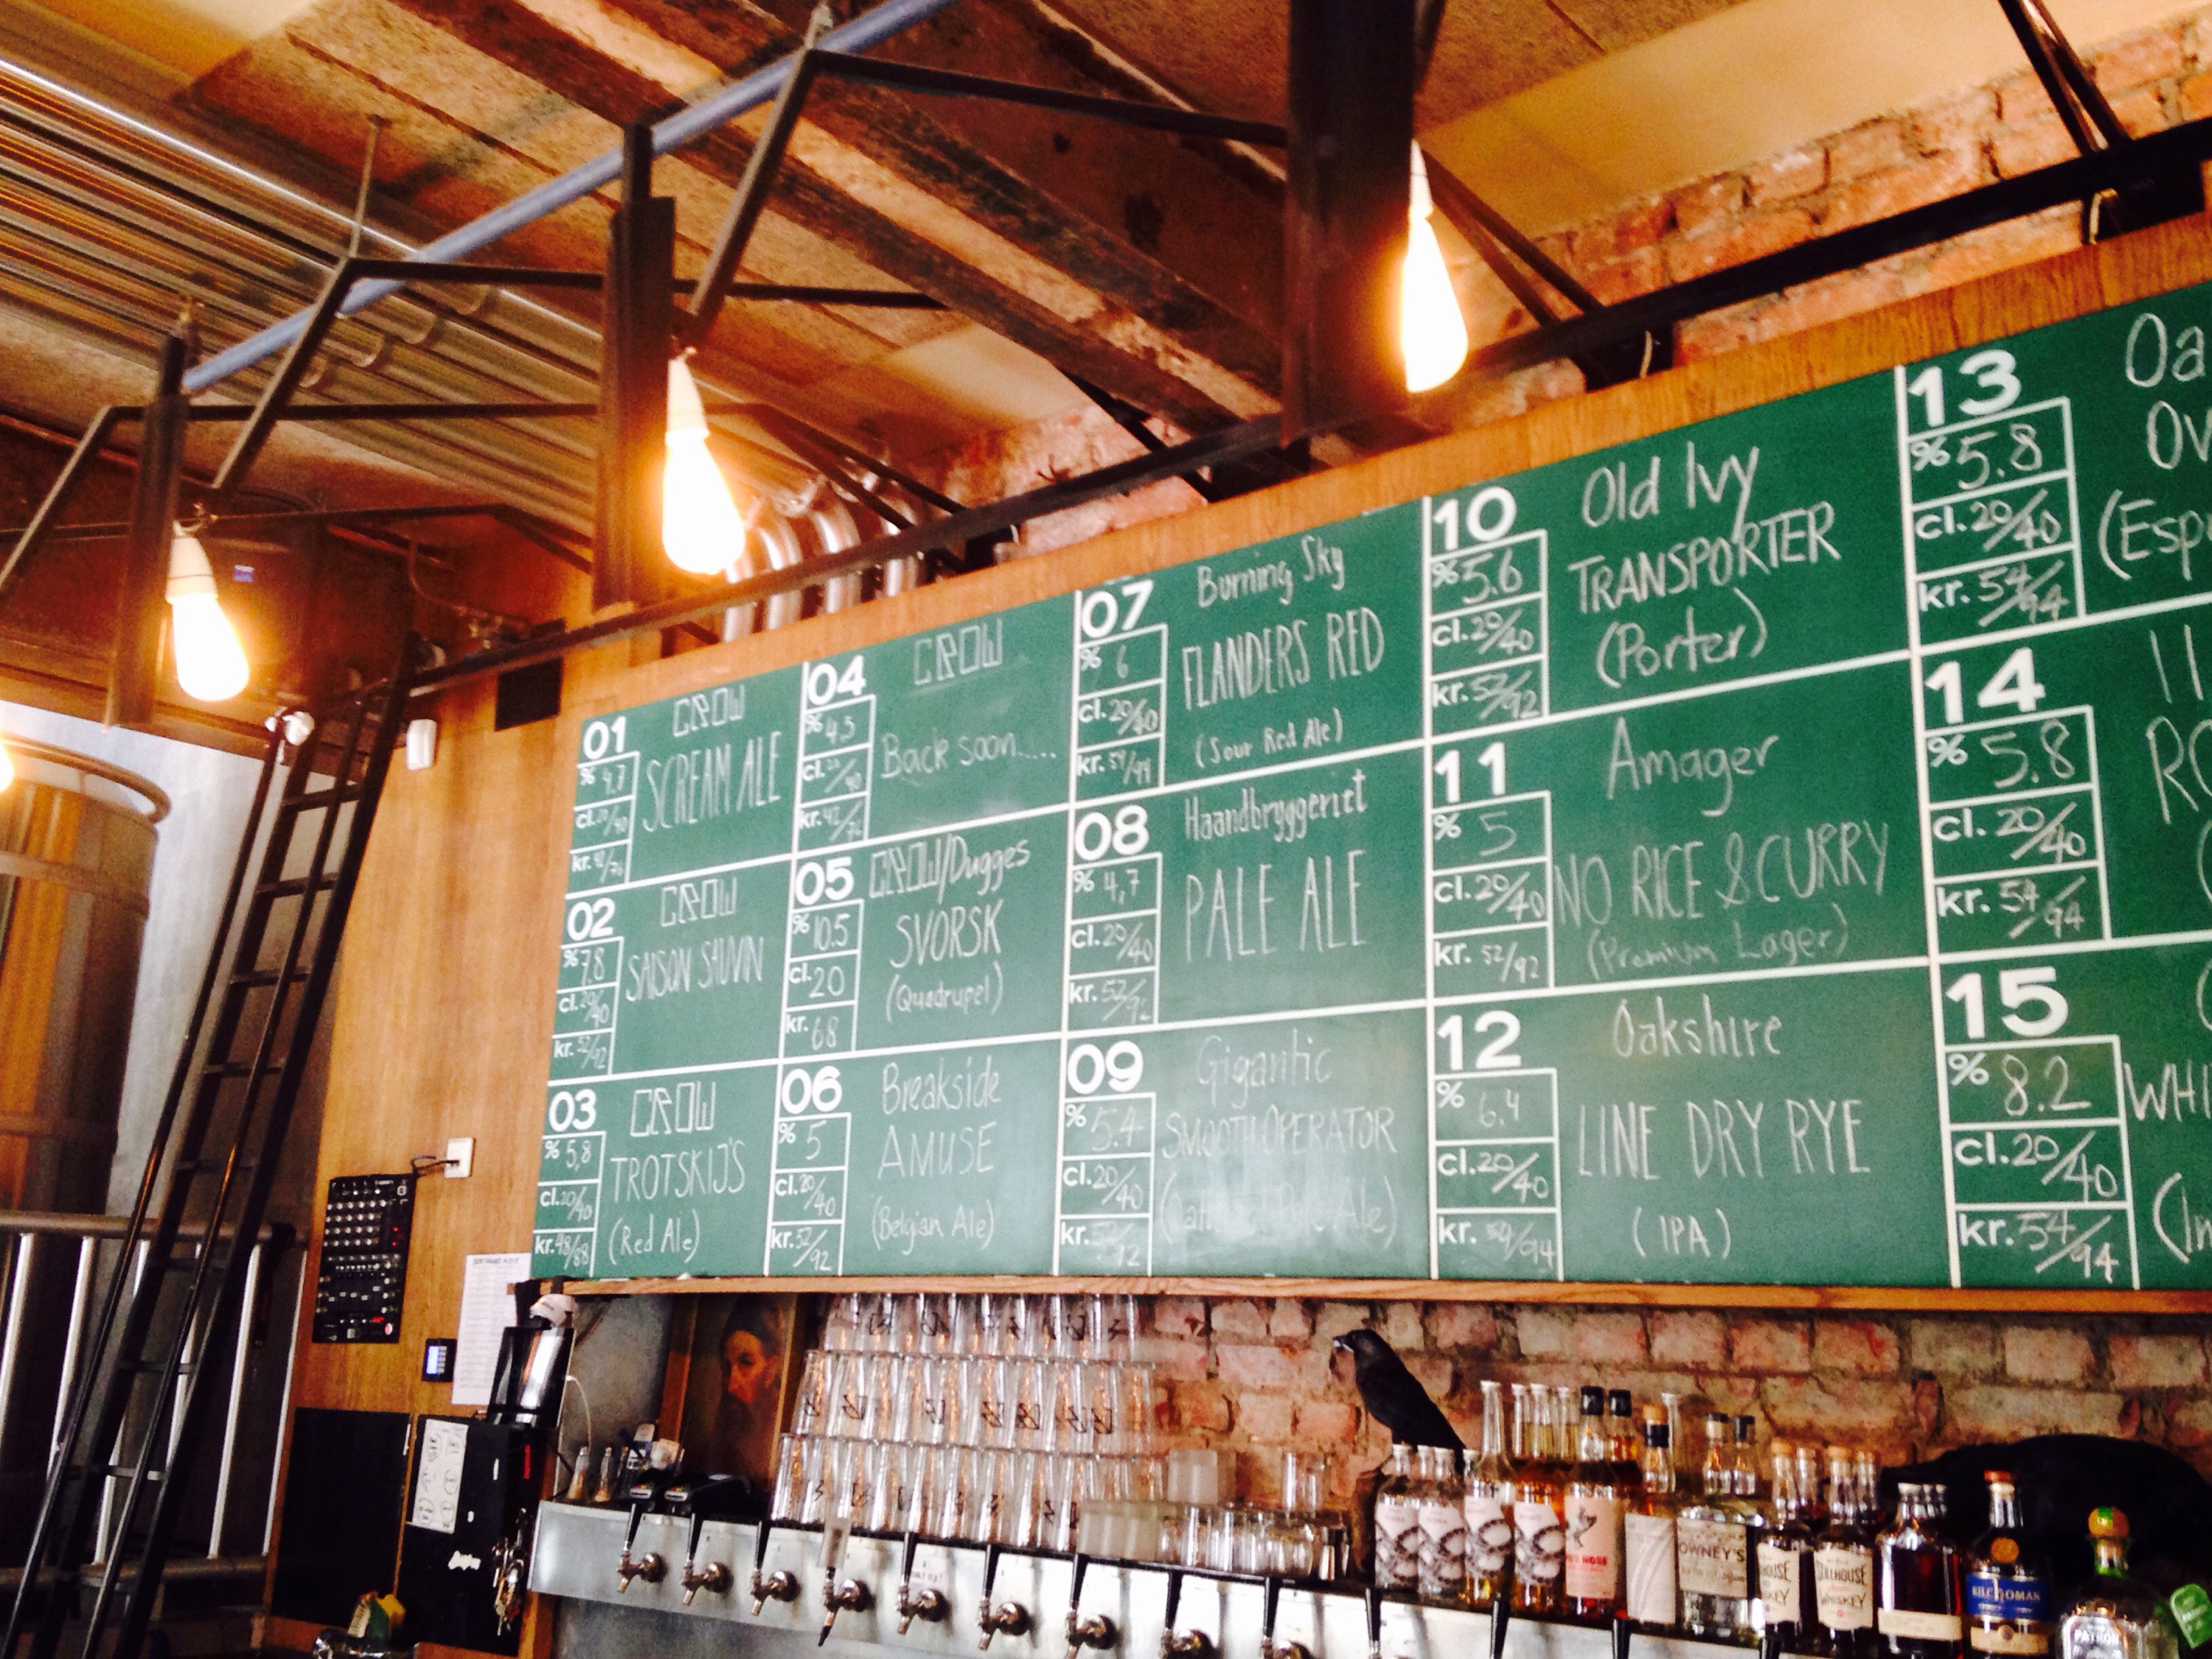 01
CROW
SCREAM ALE
% 4.7
cl. 20/40
kr. 42/76
02
CROW
SAISON SAUVIN
% 7.8
cl. 20/40
kr. 52/92
03
CROW
TROTSKIJ'S
(Red Ale)
% 5,8
cl. 20/40
kr. 48/88
04
CROW
Back soon.....
% 4,5
cl. 20/40
kr. 42/76
05
CROW/Dugges
SVORSK
(Quadrupel)
% 10.5
cl. 20
kr. 68
06
Breakside
AMUSE
(Belgian Ale)
% 5
cl. 20/40
kr. 52/92
07
Burning Sky
FLANDERS RED
(Sour Red Ale)
% 6
cl. 20/40
kr. 54/94
08
Haandbryggeriet
PALE ALE
% 4,7
cl. 20/40
kr. 52/92
09
Gigantic
SMOOTH OPERATOR
Ale)
% 5.4
cl. 20/40
kr.
10
Old Ivy
TRANSPORTER
(Porter)
% 5.6
cl. 20/40
kr. 52/92
11
Amager
NO RICE & CURRY
(Premium Lager)
% 5
cl. 20/40
kr. 52/92
12
Oakshire
LINE DRY RYE
(IPA)
% 6.4
cl. 20/40
kr. 54/94
13
Oa
Ov
(Esp
% 5.8
cl. 20/40
kr. 54/94
14
% 5.8
cl. 20/40
kr. 54/94
15
WHI
% 8.2
cl. 20/40
kr. 54/94
OWNEY'S
WHISKEY
KILCHOMAN
PATRÓN